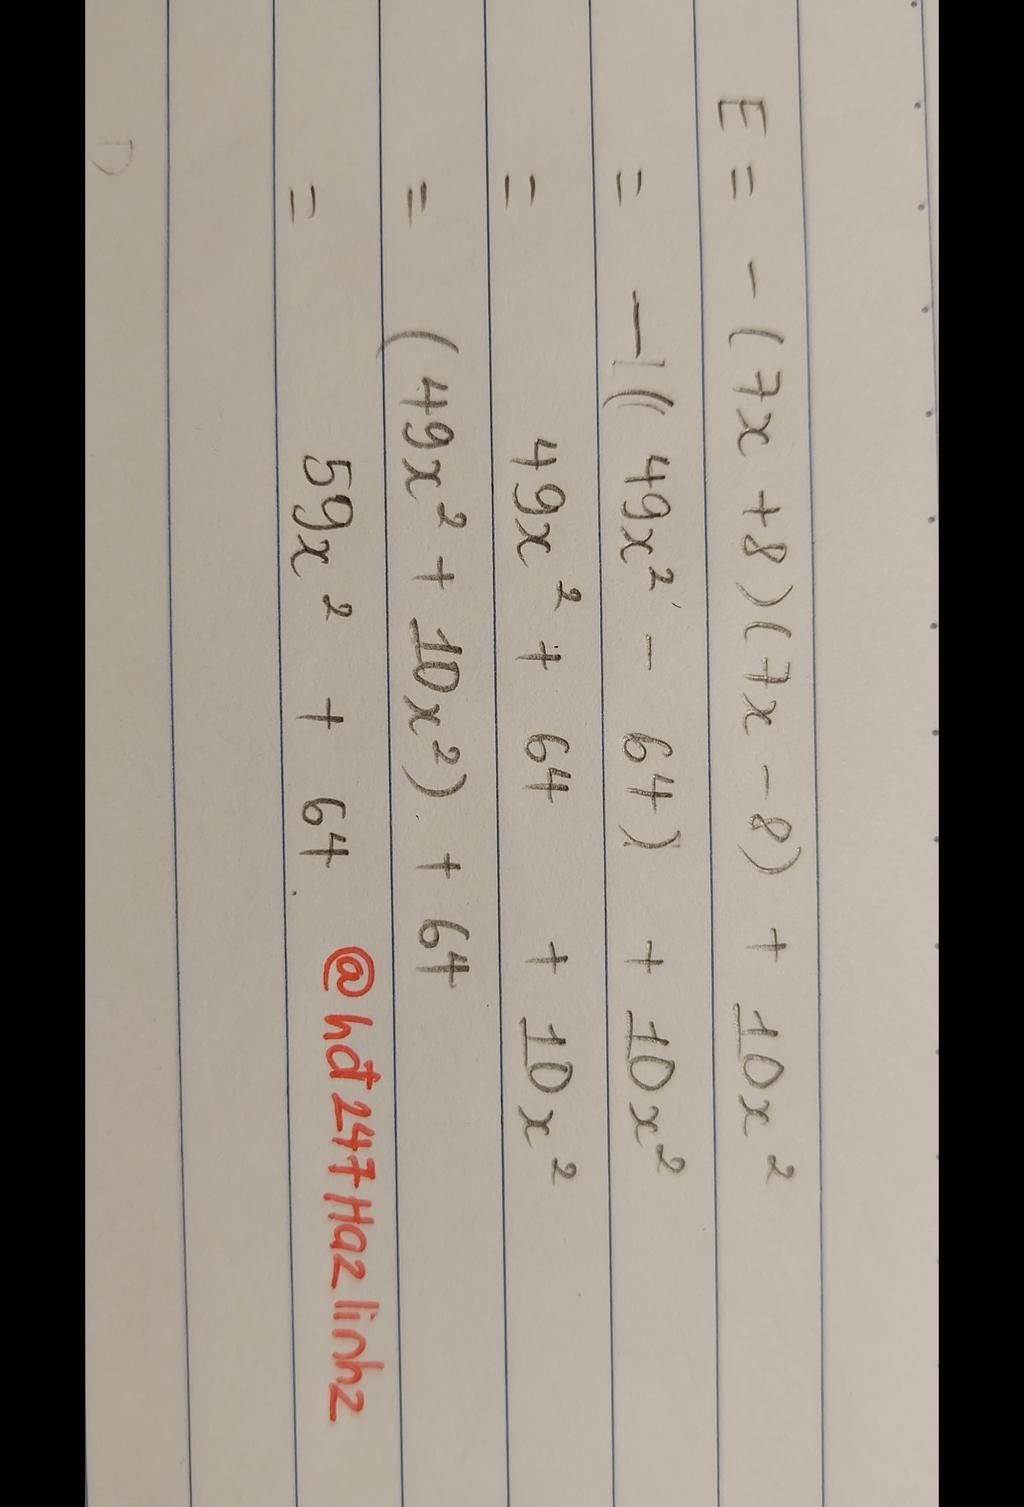 E = - (7x + 8)(7x - 8) + 10x²
= - (49x² - 64) + 10x²
= 49x² + 64 + 10x²
= (49x² + 10x²) + 64
= 59x² + 64
@hđ247Hazlinhz